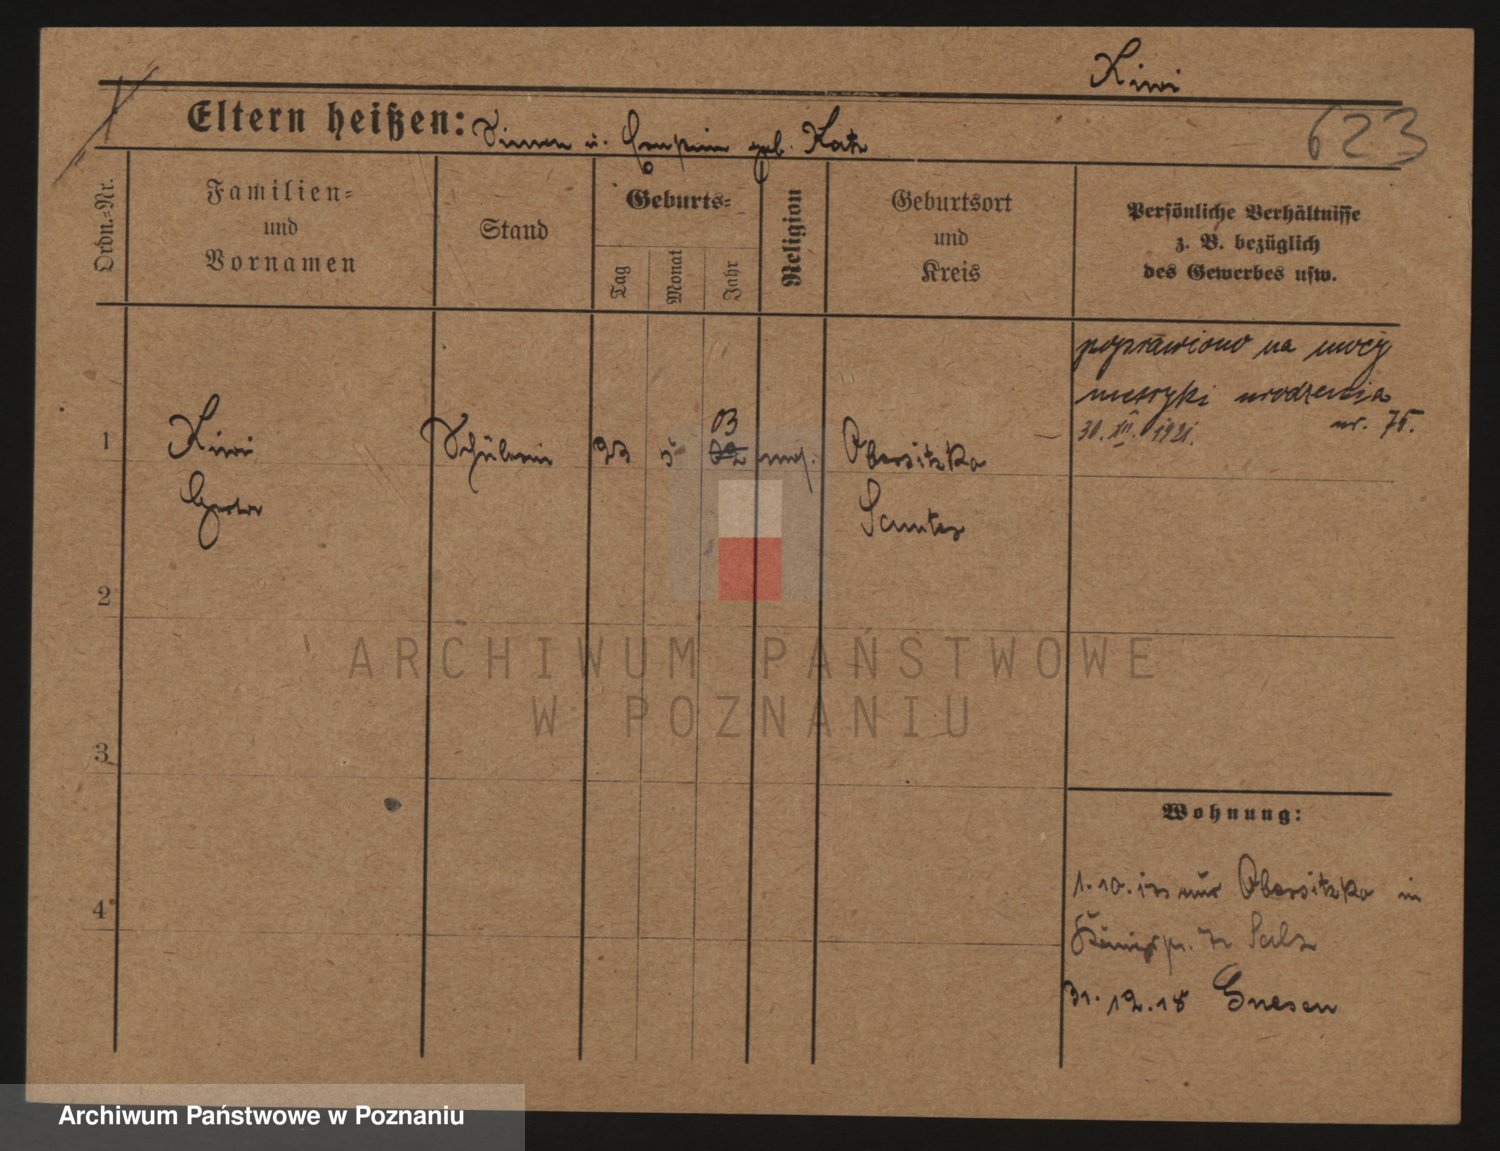 Kiwi
623
Eltern heißen: Simon u. geb. Katz
Ordn.-Nr.
Familien-
und
Vornamen
Stand
Geburts-
Tag
Monat
Jahr
Religion
Geburtsort
und
Kreis
Persönliche Verhältnisse
z. B. bezüglich
des Gewerbes usw.
poprawiono na mocy
metryki urodzenia
30. III. 1921. nr. 75.
03
1 Kiwi Schülerin 23 5 02 mos. Obersitzko
Samter
2
3
4
Wohnung:
1.10. Obersitzko in
31.12.18 Gnesen
ARCHIWUM PAŃSTWOWE
W POZNANIU
Archiwum Państwowe w Poznaniu